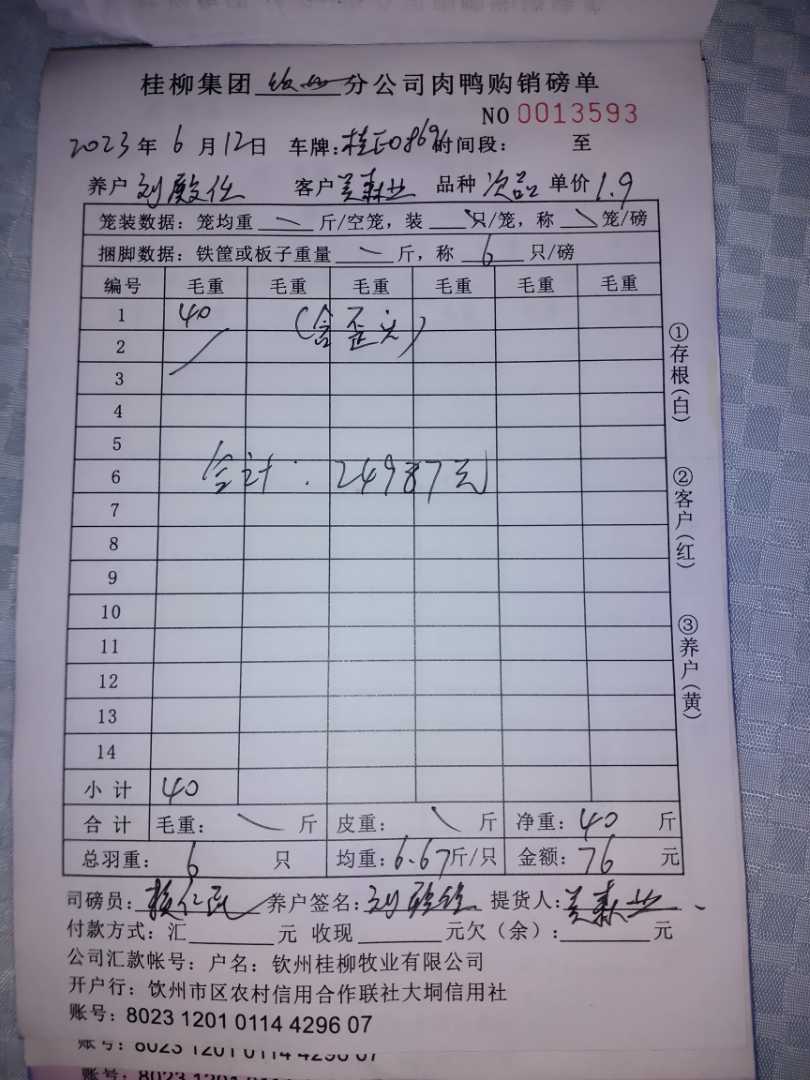 桂柳集团 钦州 分公司肉鸭购销磅单
NO 0013593
2023 年 6 月 12 日 车牌: 时间段: 至
养户 刘 客户 森业 品种 次品 单价 1.9
笼装数据: 笼均重 斤/空笼, 装 只/笼, 称 笼/磅
捆脚数据: 铁筐或板子重量 斤, 称 6 只/磅
编号 毛重 毛重 毛重 毛重 毛重 毛重
1 40 (含歪头)
2
3
4
5
6 合计: 24987元
7
8
9
10
11
12
13
14
小计 40
合计 毛重: 斤 皮重: 斤 净重: 40 斤
总羽重: 6 只 均重: 6.67 斤/只 金额: 76 元
司磅员: 养户签名: 刘 提货人: 森业
付款方式: 汇 元 收现 元欠(余): 元
公司汇款帐号: 户名: 钦州桂柳牧业有限公司
开户行: 钦州市区农村信用合作联社大垌信用社
账号: 8023 1201 0114 4296 07
①存根(白)
②客户(红)
③养户(黄)
账号: 8023 1201 0114 4296 07